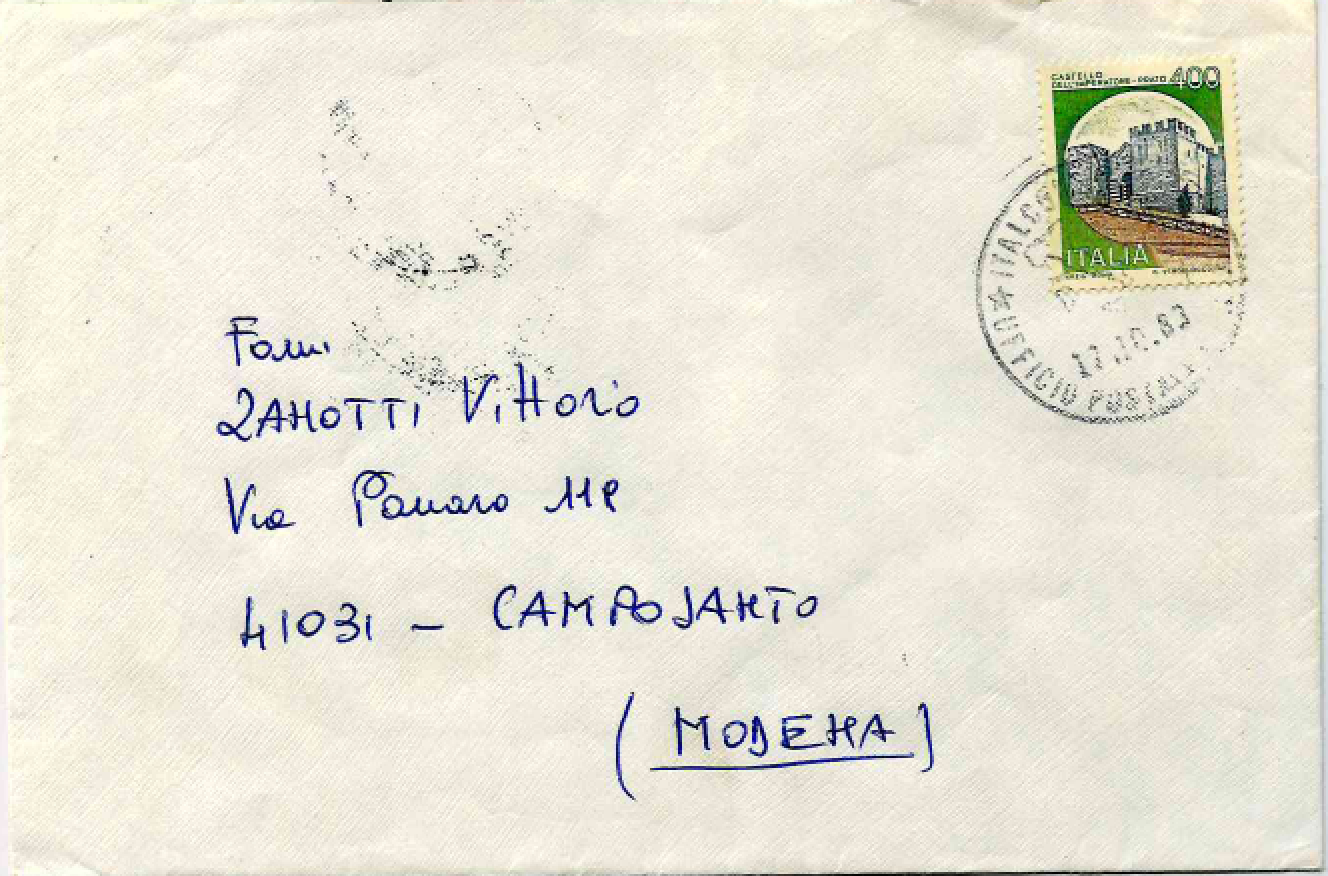 CASTELLO
DELL'IMPERATORE - PRATO 400
ITALIA
ITALCO
17.10.83
UFFICIO POSTALE
Fam.
ZANOTTI Vittorio
Via Panaro 11
41031 - CAMPOSANTO
(MODENA)